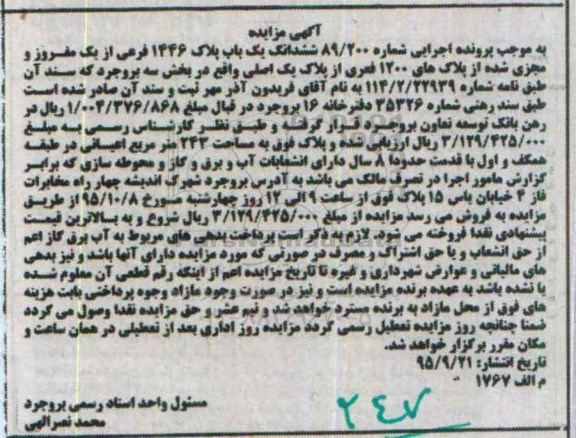 آگهی مزایده
به موجب پرونده اجرایی شماره ۸۹/۲۰۰ ششدانگ یک باب پلاک ۱۴۴۶ فرعی از یک مفروز و
مجزی شده از پلاک های ۱۲۰۰ فعری از پلاک یک اصلی واقع در بخش سه بروجرد که سند آن
طبق نامه شماره ۱۱۴/۲/۲۲۹۳۹ به نامه آقای فریدون آذر مهر ثبت و سند آن صادر شده است
طبق سند رهنی شماره ۳۵۳۲۶ دفترخانه ۱۶ بروجرد در قبال مبلغ ۱/۰۰۴/۳۷۶/۸۶۸ ریال در
رهن بانک توسعه تعاون بروجرد قرار گرفته و طبق نظر کارشناس رسمی به مبلغ
۳/۱۲۹/۴۲۵/۰۰۰ ریال ارزیابی شده و پلاک فوق به مساحت ۲۴۳ متر مربع اعیانی در طبقه
همکف و اول با قدمت حدودا ۸ سال دارای انشعابات آب و برق و گاز و محوطه سازی که برابر
گزارش مامور اجرا در تصرف مالک می باشد به آدرس بروجرد شهرک اندیشه چهار راه مخابرات
فاز ۲ خیابان یاس ۱۵ پلاک فوق از ساعت ۹ الی ۱۲ روز چهارشنبه مورخ ۹۵/۱۰/۸ از طریق
مزایده به فروش می رسد مزایده از مبلغ ۳/۱۲۹/۴۲۵/۰۰۰ ریال شروع و به بالاترین قیمت
پیشنهادی نقدا فروخته می شود. لازم به ذکر است پرداخت بدهی های مربوط به آب برق گاز اعم
از حق انشعاب و یا حق اشتراک و مصرف در صورتی که مورد مزایده دارای آنها باشد و نیز بدهی
های مالیاتی و عوارض شهرداری و غیره تا تاریخ مزایده اعم از اینکه رقم قطعی آن معلوم شده
یا نشده باشد به عهده برنده مزایده است و نیز در صورت وجود مازاد وجوه پرداختی بابت هزینه
های فوق از محل مازاد به برنده مسترد خواهد شد و نیم عشر و حق مزایده نقدا وصول می گردد
ضمنا چنانچه روز مزایده تعطیل رسمی گردد مزایده روز اداری بعد از تعطیلی در همان ساعت و
مکان مقرر برگزار خواهد شد.
تاریخ انتشار: ۹۵/۹/۲۱
م الف ۱۷۶۷
مسئول واحد اسناد رسمی بروجرد
محمد نصرالهی
۲۴۷